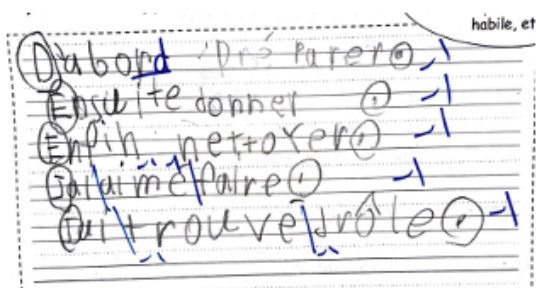 habile, et
D'abord Préparer.
Ensuite donner.
Enfin nettoyer.
J'ai aimé faire.
J'ai trouvé drôle.